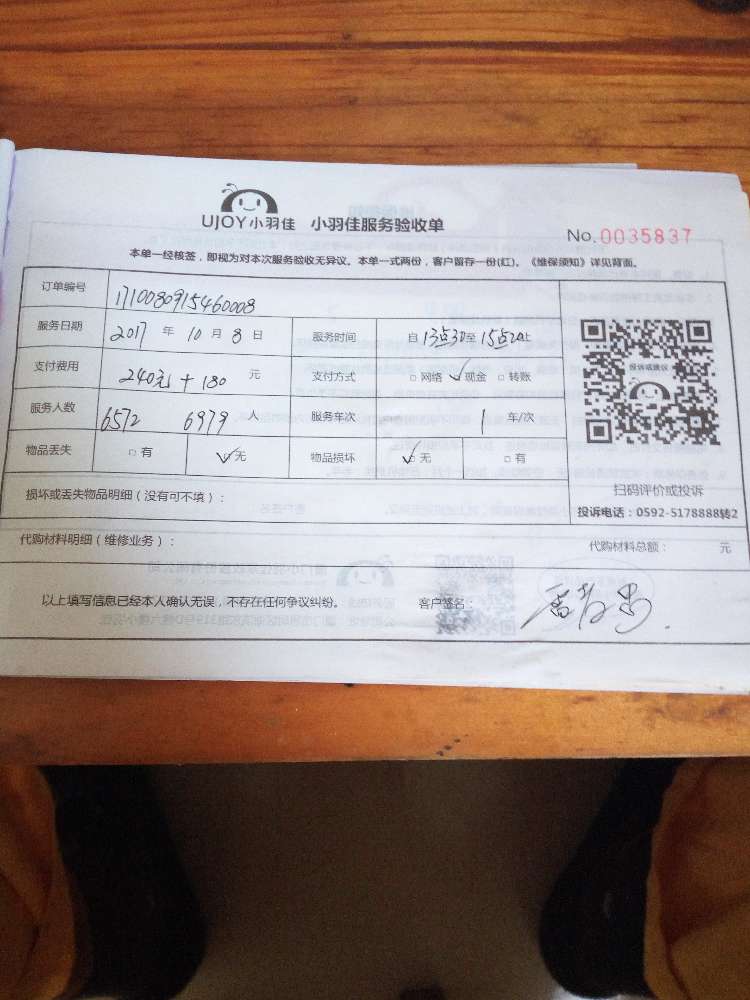 UJOY小羽佳 小羽佳服务验收单
No. 0035837
本单一经核签，即视为对本次服务验收无异议。本单一式两份，客户留存一份(红)。《维保须知》详见背面。
订单编号 1710080915460008
服务日期 2017 年 10 月 8 日 服务时间 自 13点30至 15点20止
支付费用 240元 + 180 元 支付方式 □ 网络 ✓ 现金 □ 转账
服务人数 6572 6979 人 服务车次 1 车/次
物品丢失 □ 有 ✓无 物品损坏 ✓无 □ 有
投诉或建议
扫码评价或投诉
投诉电话：0592-5178888转2
损坏或丢失物品明细（没有可不填）：
代购材料明细（维修业务）： 代购材料总额： 元
以上填写信息已经本人确认无误，不存在任何争议纠纷。 客户签名：